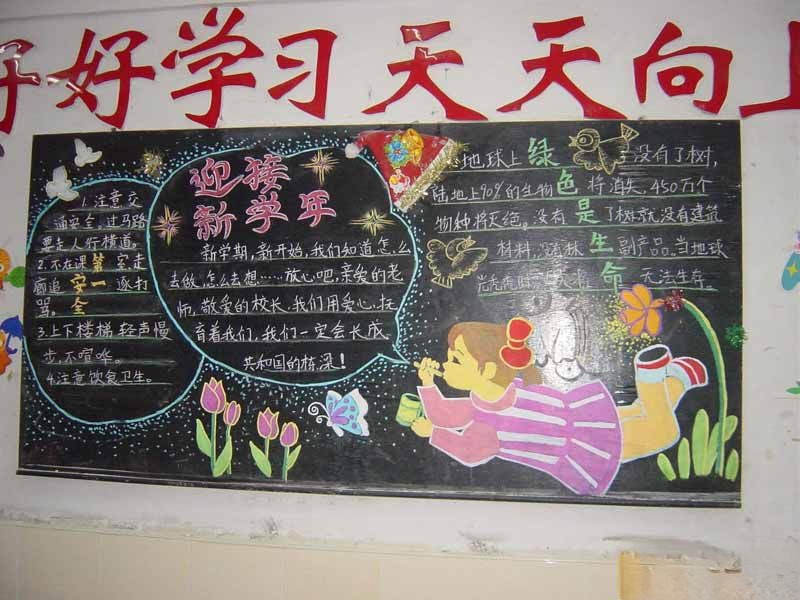 好好学习天天向上
1.注意交
通安全,过马路
要走人行横道。
2.不在课室走
廊追逐打
骂。
安全第一
3.上下楼梯,轻声慢
步,不喧哗。
4.注意饮食卫生。
迎接
新学年
新学期,新开始,我们知道怎么
去做,怎么去想……放心吧,亲爱的老
师,敬爱的校长,我们用爱心,抚
育着我们,我们一定会长成
共和国的栋深!
绿色是生命
地球上没有了树,
陆地上90%的生物将消失,450万个
物种将灭绝。没有了树就没有建筑
材料,林副产品。当地球
光秃秃时无法生存。